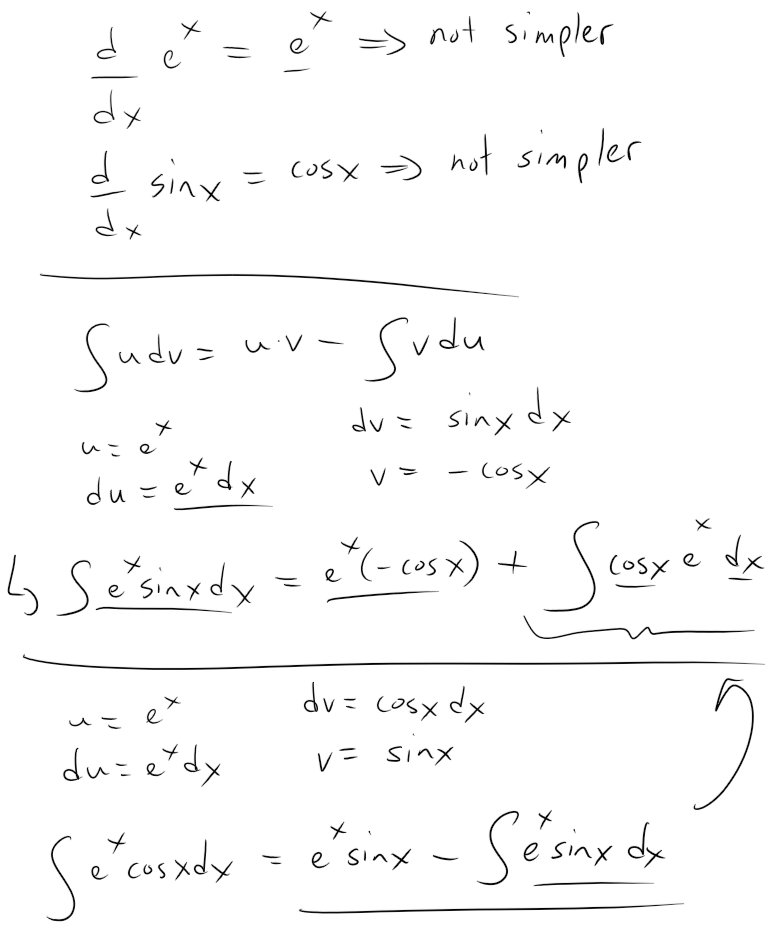 d/dx e^x = e^x ⇒ not simpler
d/dx sinx = cosx ⇒ not simpler
∫udv = u·v − ∫vdu
u = e^x dv = sinx dx
du = e^x dx v = − cosx
↳ ∫e^x sinxdx = e^x(−cosx) + ∫cosx e^x dx
u = e^x dv = cosx dx
du = e^x dx v = sinx
∫e^x cosxdx = e^x sinx − ∫e^x sinx dx